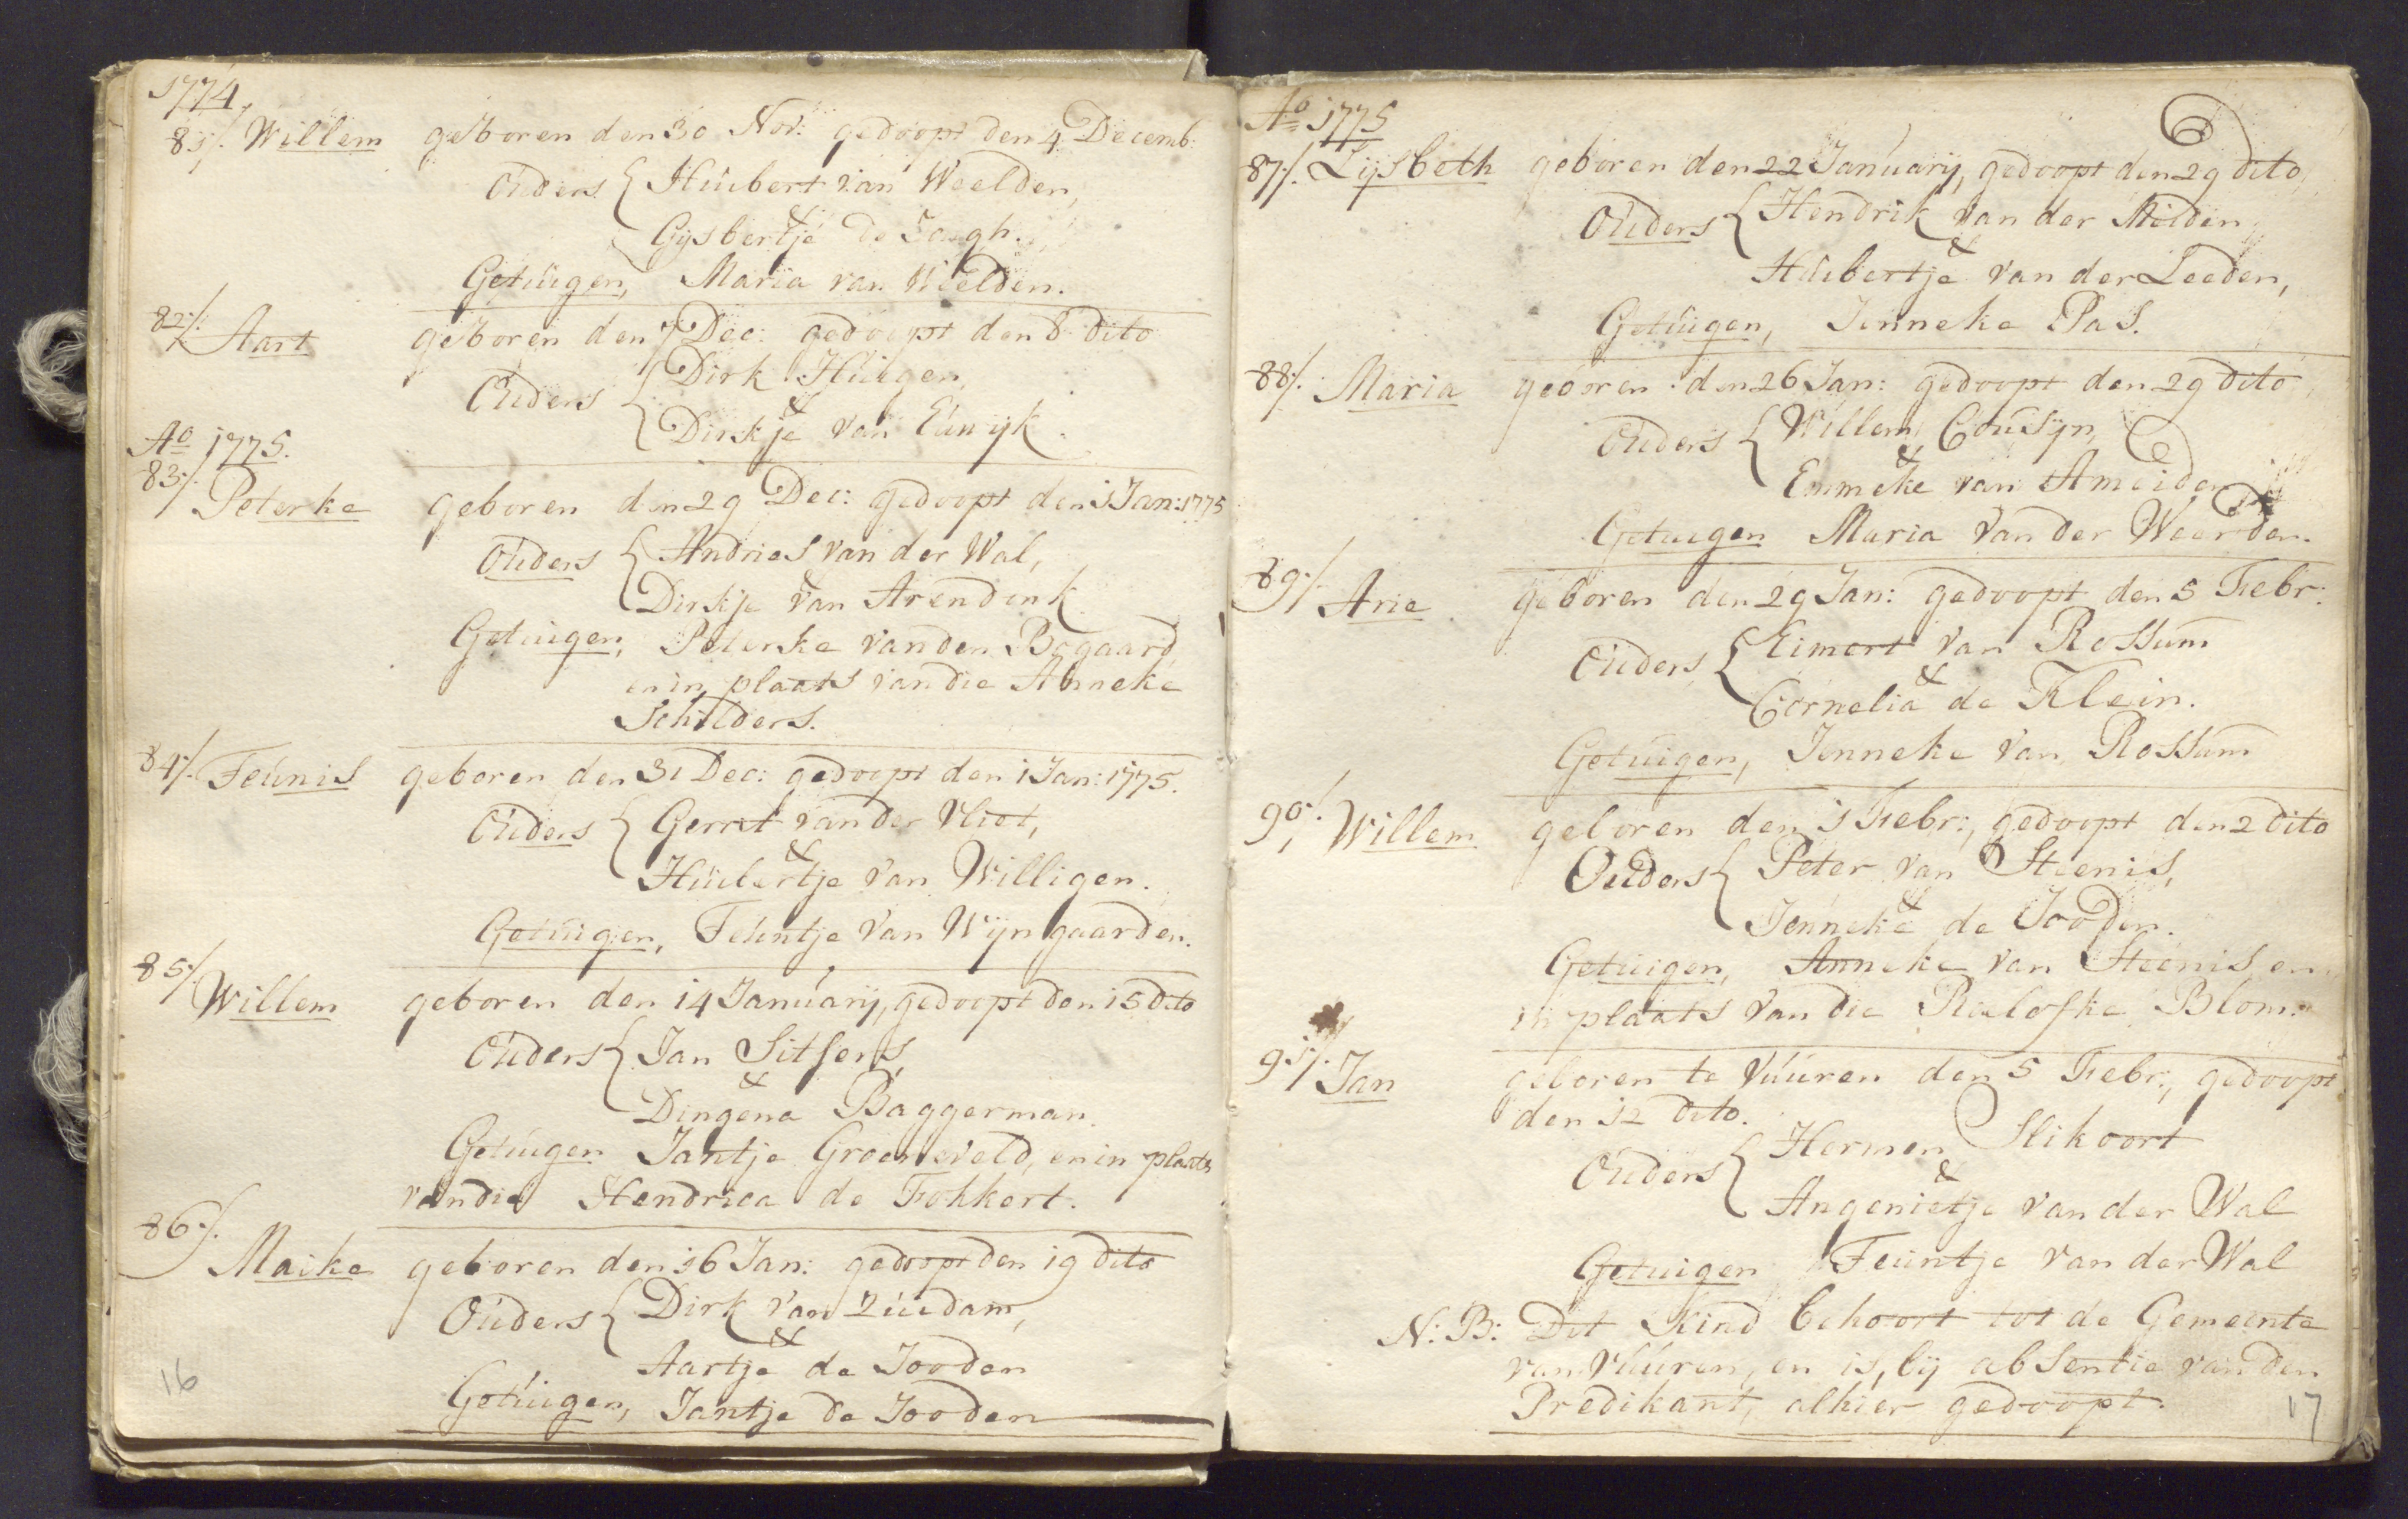 1774
81/. Willem geboren den 30 Nov: gedoopt den 4 Decemb:
Ouders { Huibert van Weelden,
&
Gijsbertje de Jongh.
Getuigen, Maria van Weelden.
82/. Aart geboren den 7 Dec: gedoopt den 8 dito
Ouders { Dirk Huigen,
&
Dirkje van Eúwijk.
Ao 1775.
83/. Peterke geboren den 29 Dec: gedoopt den 1 Jan: 1775
Ouders { Andries van der Wal,
&
Dirkje van Arendonk
Getuigen, Peterke van den Bogaard
en in plaats van die Anneke
Schilders.
84/. Teunis geboren den 31 Dec: gedoopt den 1 Jan: 1775.
Ouders { Gerrit van der Vliet,
&
Huibertje van Willigen.
Getuigen, Teuntje van Wijngaarden.
85/. Willem geboren den 14 January, gedoopt den 15 dito
Ouders { Jan Sitsens,
&
Dingena Baggerman.
Getuigen Jantje Groeneveld, en in plaats
van die Hendrica de Fokkert.
86/. Maike geboren den 16 Jan: gedoopt den 19 dito
Ouders { Dirk van Zuidam,
&
Aartje de Jooden
Getuigen, Jantje de Jooden
16
Ao 1775
87/. Lijsbeth geboren den 22 January, gedoopt den 29 dito,
Ouders { Hendrik van der Meiden
&
Huibertje van der Leeden,
Getuigen, Jenneke Pas.
88/. Maria geboren den 26 Jan: gedoopt den 29 dito
Ouders { Willem Cousijn,
&
Emmeke van Ameiden
Getuigen Maria van der Weerden.
89/. Arie geboren den 29 Jan: gedoopt den 5 Febr:
Ouders { Eimert van Rossum
&
Cornelia de Klein.
Getuigen, Jenneke van Rossum
90/. Willem geboren den 1 Febr:, gedoopt den 2 dito
Ouders { Peter van Steenis,
&
Jenneke de Jooden.
Getuigen, Anneke van Steenis, en
in plaats van die Roelofke Blom.
91/. Jan geboren te Vúúren den 5 Febr:, gedoopt
den 12 dito.
Ouders { Hermen Slikoort
&
Angenietje van der Wal
Getuigen Teuntje van der Wal
N: B: Dit Kind behoort tot de Gemeente
van Vúúren, en is, bij absentie van den
Predikant, alhier gedoopt.
17